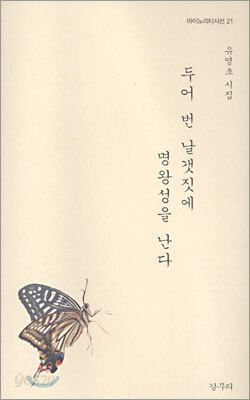 마이노리티시선 21
유영초 시집
두어 번 날갯짓에
명왕성을 난다
갈무리